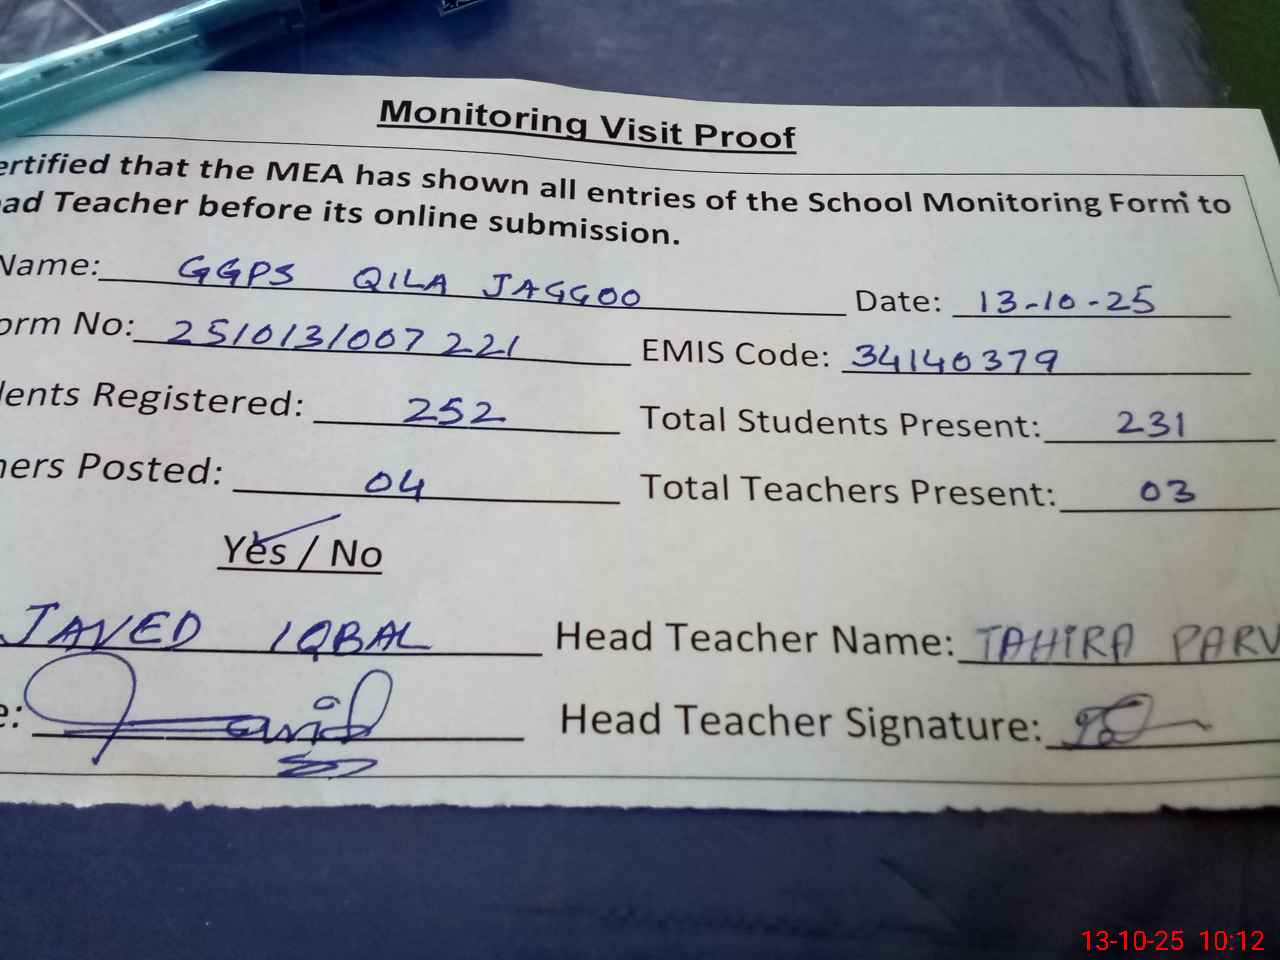 Monitoring Visit Proof
ertified that the MEA has shown all entries of the School Monitoring Form to
ad Teacher before its online submission.
Name: GGPS QILA JAGGOO Date: 13-10-25
orm No: 251013/007221 EMIS Code: 34140379
ents Registered: 252 Total Students Present: 231
hers Posted: 04 Total Teachers Present: 03
Yes / No
JAVED IQBAL Head Teacher Name: TAHIRA PARV
e: Javid Head Teacher Signature:
13-10-25 10:12